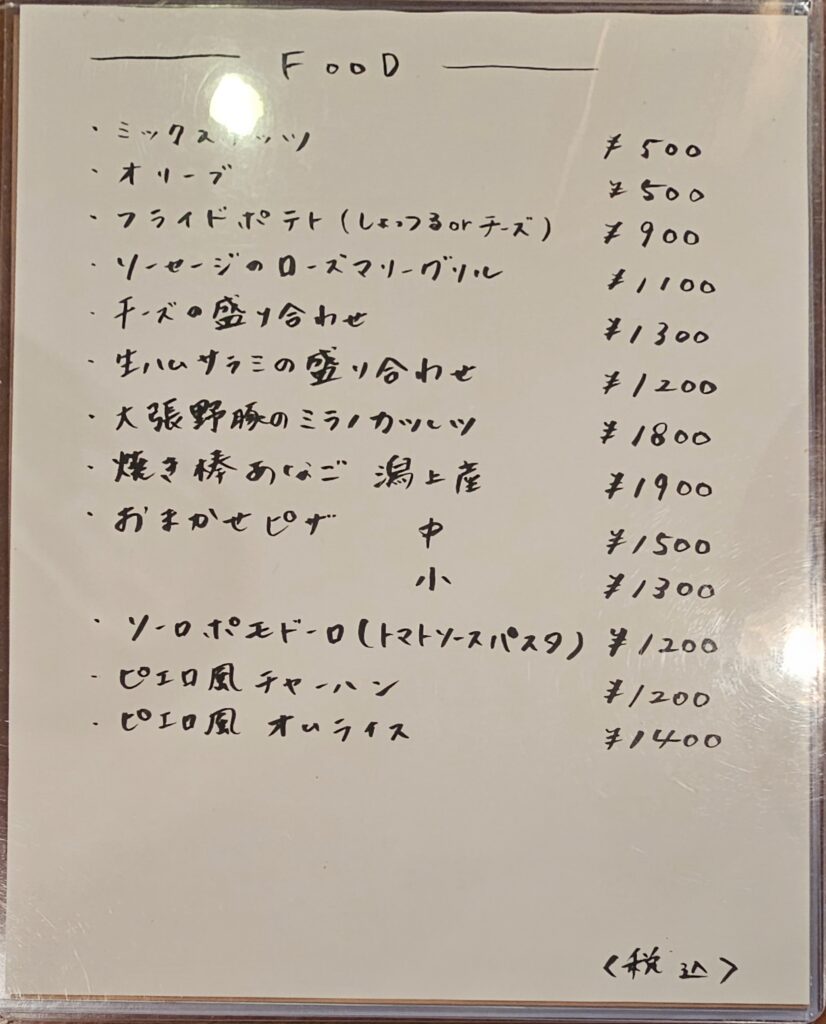 FOOD
・ミックスナッツ ¥500
・オリーブ ¥500
・フライドポテト(しょっつるorチーズ) ¥900
・ソーセージのローズマリーグリル ¥1100
・チーズの盛り合わせ ¥1300
・生ハムサラミの盛り合わせ ¥1200
・大張野豚のミラノカツレツ ¥1800
・焼き棒あなご 潟上産 ¥1900
・おまかせピザ 中 ¥1500
小 ¥1300
・ソーロポモドーロ(トマトソースパスタ) ¥1200
・ピエロ風チャーハン ¥1200
・ピエロ風 オムライス ¥1400
<税込>